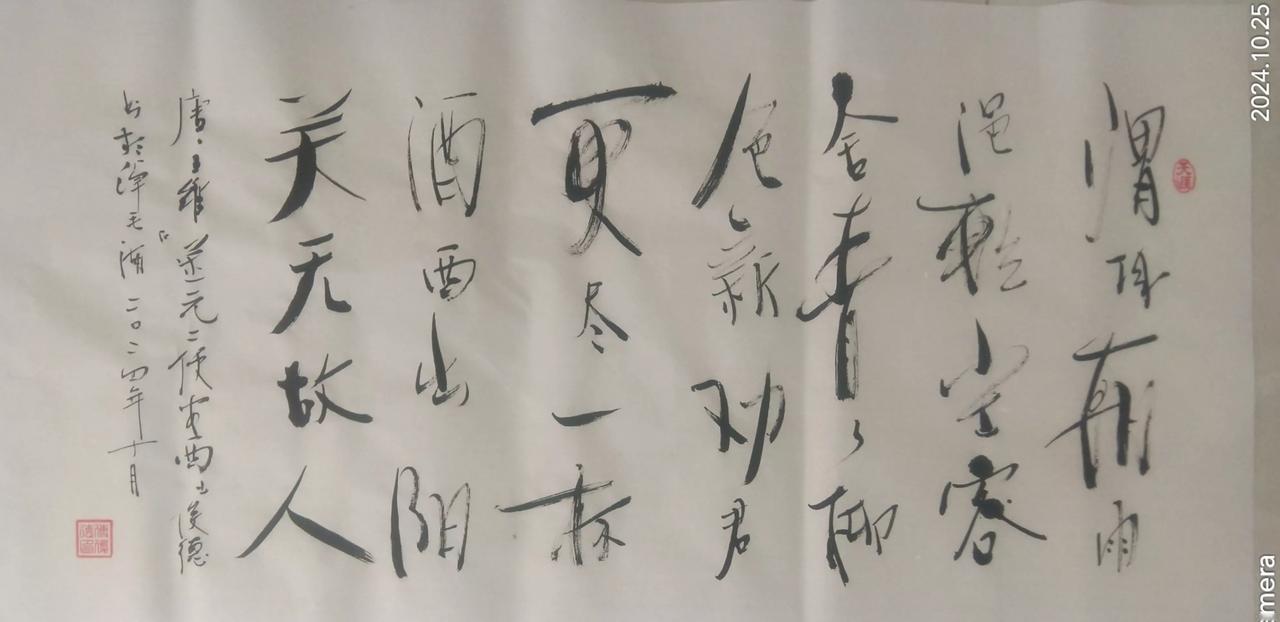 渭城朝雨
浥轻尘客
舍青々柳
色々新劝君
更尽一杯
酒西出阳
关无故人
唐·王维送元二使安西 俊德
书于浑毛酒 二〇二四年十月
天涯
2024.10.25
mera